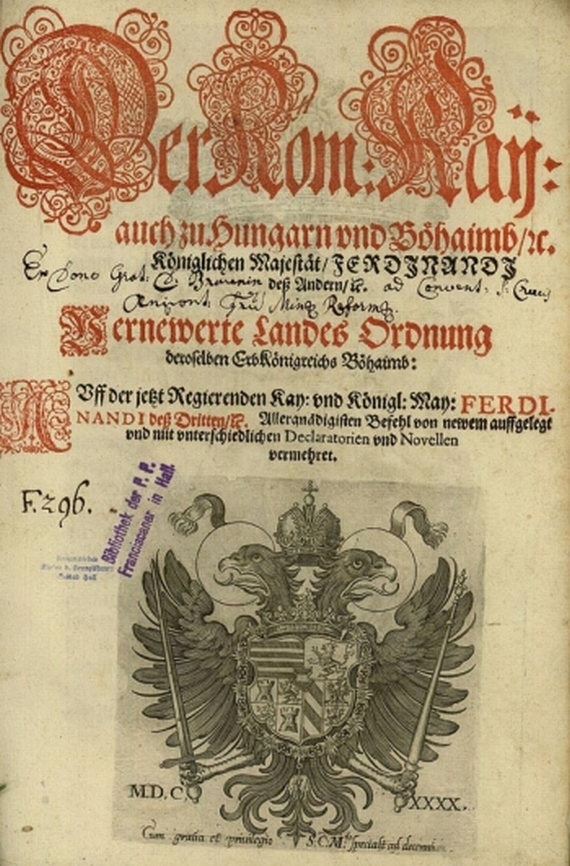 Der Röm: Kaÿ:
auch zu Hungarn vnd Böhaimb/ꝛc.
Königlichen Majestät/ FERDINANDI
deß Andern/ꝛc.
Ex dono Grat. ad Convent: S. Crucis
Reform.
Vernewerte Landes Ordnung
deroselben ErbKönigreichs Böhaimb:
Auff der jetzt Regierenden Kay: vnd Königl: May: FERDI-
NANDI deß Dritten/ꝛc. Allergnädigisten Befehl von newem auffgelegt
vnd mit vnterschiedlichen Declaratorien vnd Novellen
vermehret.
F. 296.
Bibliothek der P. P.
Franciscaner in Hall.
M.D.C. XXXX.
Cum gratia et privilegio S.C.M.tis speciali ad decennium